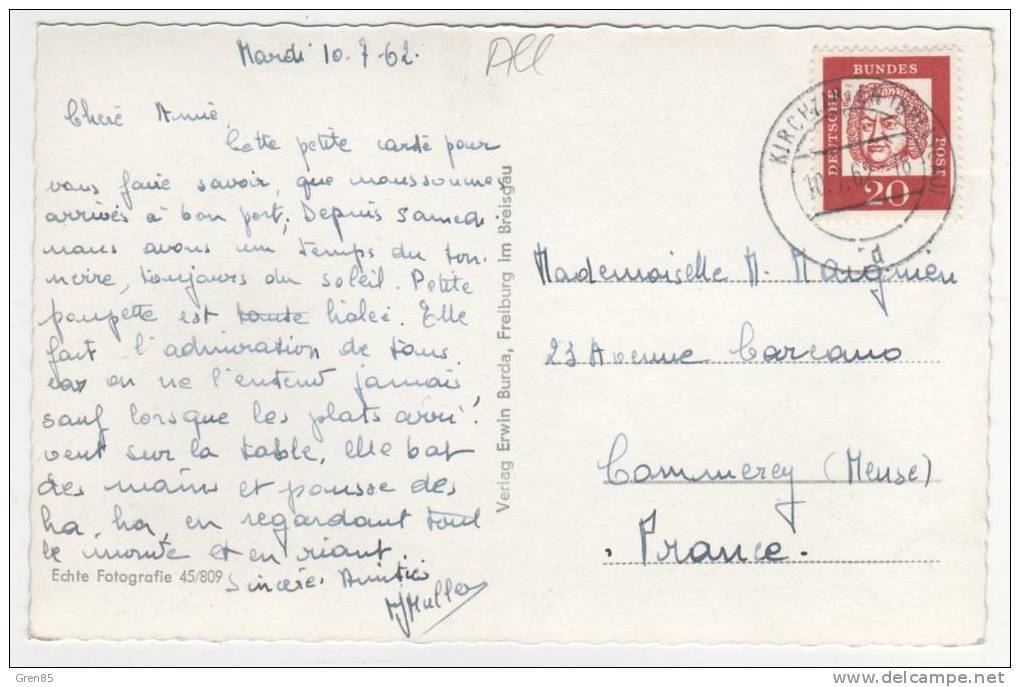 Mardi 10-7-62.
All
Chère Amie,
Cette petite carte pour
vous faire savoir, que nous sommes
arrivés à bon port. Depuis samedi
nous avons un temps du ton-
nerre, toujours du soleil. Petite
poupette est toute halée. Elle
fait l'admiration de tous
car on ne l'entend jamais
sauf lorsque les plats arri-
vent sur la table, elle bat
des mains et pousse des
ha, ha, en regardant tout
le monde et en riant.
Sincères Amitiés
Muller
Echte Fotografie 45/809
Verlag Erwin Burda, Freiburg im Breisgau
DEUTSCHE BUNDES POST
20
KIRCHZARTEN
10.7.62
d
Mademoiselle M. Maignien
23 Avenue Carcano
Commercy (Meuse)
France.
Gren85
http://www.delcampe.net